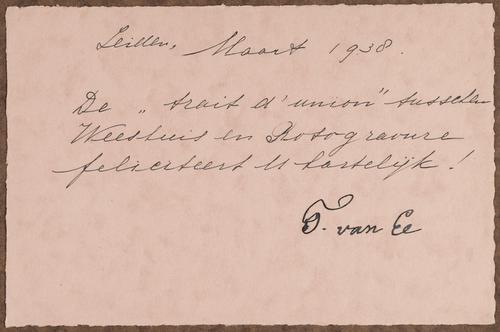 Leiden, Maart 1938.
De „trait d'union" tusschen
Weeshuis en Rotogravure
feliciteert U hartelijk!
T. van Ee